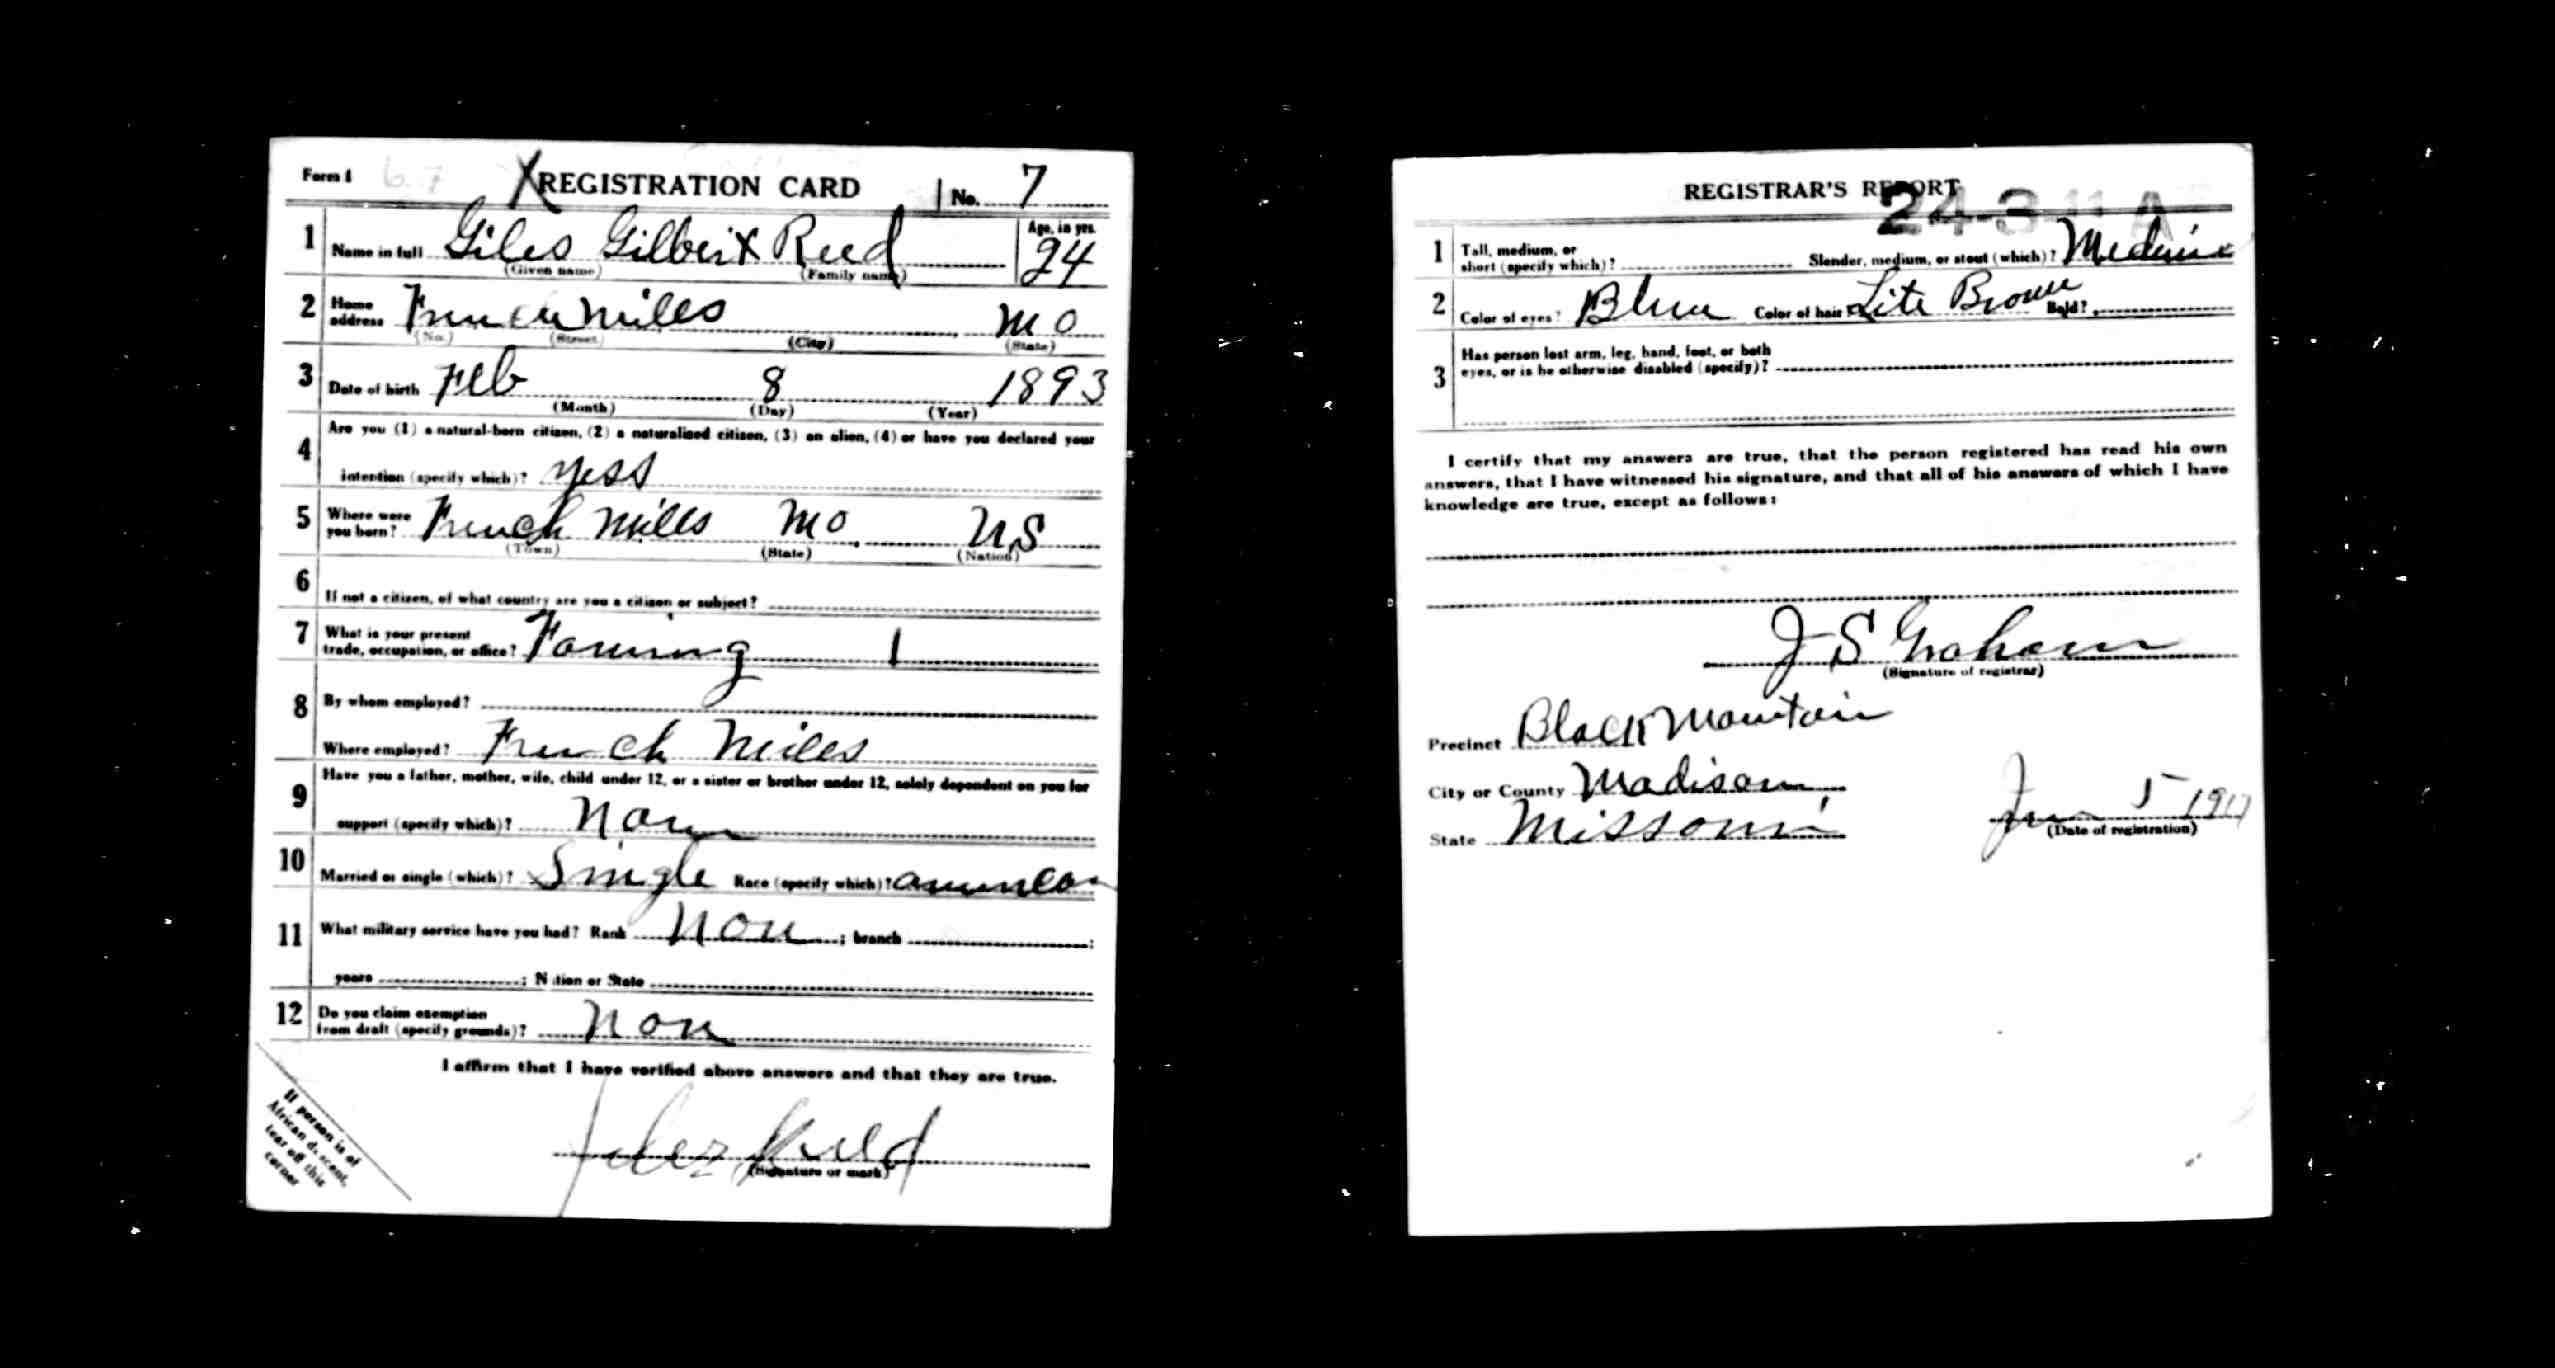 Form 1 6.7 X REGISTRATION CARD No. 7
1 Name in full Giles Gilbert Reed Age, in yrs. 24
(Given name) (Family name)
2 Home address French Mills Mo
(No.) (Street) (City) (State)
3 Date of birth Feb 8 1893
(Month) (Day) (Year)
4 Are you (1) a natural-born citizen, (2) a naturalized citizen, (3) an alien, (4) or have you declared your
intention (specify which)? Yess
5 Where were you born? French Mills Mo. U.S
(Town) (State) (Nation)
6 If not a citizen, of what country are you a citizen or subject?
7 What is your present trade, occupation, or office? Farming 1
8 By whom employed?
Where employed? French Mills
9 Have you a father, mother, wife, child under 12, or a sister or brother under 12, solely dependent on you for
support (specify which)? Non
10 Married or single (which)? Single Race (specify which)? American
11 What military service have you had? Rank Non ; branch ;
years ; Nation or State
12 Do you claim exemption from draft (specify grounds)? Non
I affirm that I have verified above answers and that they are true.
Giles Reed
(Signature or mark)
If person is of
African descent,
tear off this
corner
REGISTRAR'S REPORT
24-3-11 A
1 Tall, medium, or short (specify which)? Slender, medium, or stout (which)? Medium
2 Color of eyes? Blue Color of hair? Lite Brown Bald?
3 Has person lost arm, leg, hand, foot, or both
eyes, or is he otherwise disabled (specify)?
I certify that my answers are true, that the person registered has read his own
answers, that I have witnessed his signature, and that all of his answers of which I have
knowledge are true, except as follows:
J S Graham
(Signature of registrar)
Precinct Black Mountain
City or County Madison
State Missouri Jun 5 1917
(Date of registration)